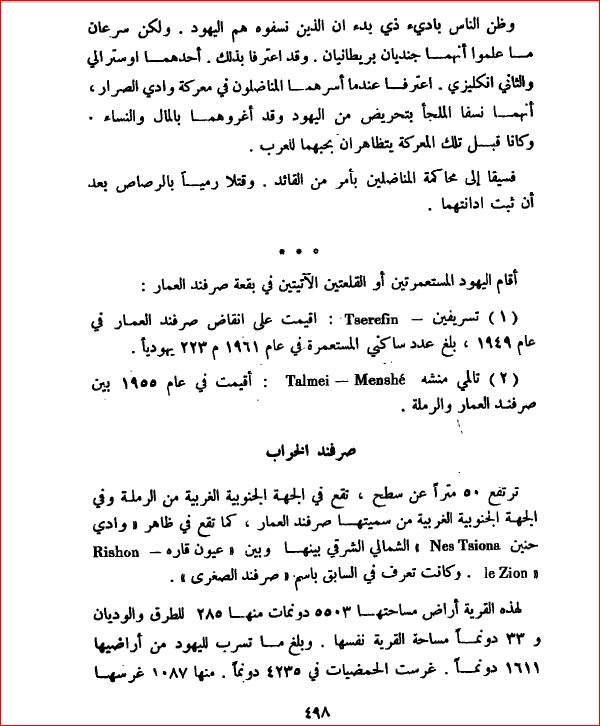 وظن الناس باديء ذي بدء ان الذين نسفوه هم اليهود . ولكن سرعان
مـا علموا أنهمـا جنديان بريطانيان . وقد اعترفا بذلك . أحدهمـا اوسترالي
والثاني انكليزي . اعترفـا عندما أسرهمـا المناضلون في معركة وادي الصرار ،
أنهمـا نسفا الملجأ بتحريض من اليهود وقد أغروهمـا بالمال والنساء .
وكانا قبـل تلك المعركة يتظاهران بحبهما للعرب .
فسيقا إلى محاكمة المناضلين بأمر من القائد . وقتلا رميـاً بالرصاص بعد
أن ثبت ادانتهما .
* * *
أقام اليهود المستعمرتين أو القلعتين الآتيتين في بقعة صرفند العمار :
( ١ ) تسريفين – Tserefin : اقيمت على انقاض صرفند العمـار في
عام ١٩٤٩ ، بلغ عدد ساكني المستعمرة في عام ١٩٦١ م ٢٢٣ يهودياً .
( ٢ ) تالمي منشه Talmei – Menshé : أقيمت في عام ١٩٥٥ بين
صرفنـد العمار والرملة .
صرفند الخراب
ترتفع ٥٠ متراً عن سطح ، تقع في الجهة الجنوبية الغربية من الرملة وفي
الجهـة الجنوبية الغربية من سميتهـا صرفند العمار ، كمـا تقع في ظاهر « وادي
حنين Nes Tsiona » الشمالي الشرقي بينهـا وبين « عيون قاره – Rishon
le Zion » . وكانت تعرف في السابق باسم « صرفند الصغرى » .
لهذه القرية أراض مساحتهـا ٥٥٠٣ دونمات منهـا ٢٨٥ للطرق والوديان
و ٣٣ دونمـاً مساحة القرية نفسها . وبلغ مـا تسرب لليهود من أراضيها
١٦١١ دونمـاً . غرست الحمضيات في ٤٢٣٥ دونماً . منها ١٠٨٧ غرسهـا
٤٩٨